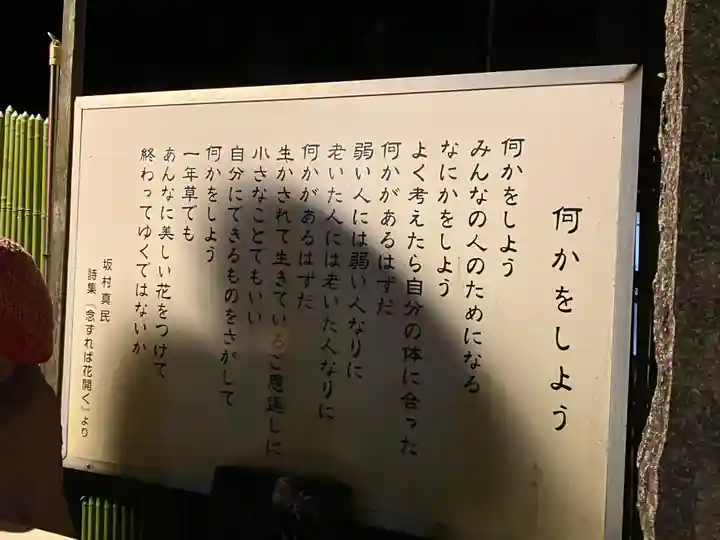 何かをしよう
何かをしよう
みんなの人のためになる
なにかをしよう
よく考えたら自分の体に合った
何かがあるはずだ
弱い人には弱い人なりに
老いた人には老いた人なりに
何かがあるはずだ
生かされて生きているご恩返しに
小さなことでもいい
自分にできるものをさがして
何かをしよう
一年草でも
あんなに美しい花をつけて
終わってゆくではないか
坂村真民
詩集『念ずれば花開く』より